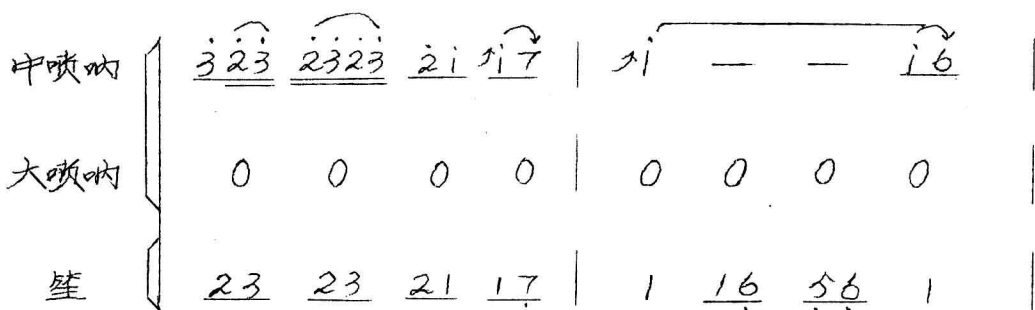 中唢呐 3̇ 2̇3̇ 2̇3̇2̇3̇ 2̇ i i 7 | i — — i 6 |
大唢呐 0 0 0 0 | 0 0 0 0 |
笙 23 23 21 17̣ | 1 16̣ 5̣6̣ 1 |